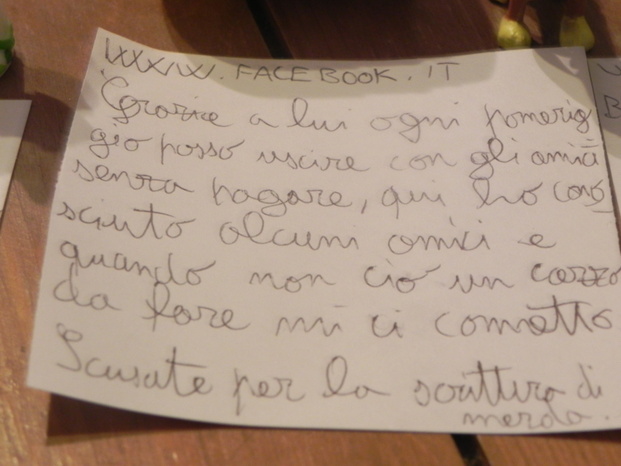 WWW.FACEBOOK.IT
Grazie a lui ogni pomerig
gio posso uscire con gli amici
senza pagare, qui ho cono
sciuto alcuni amici e
quando non ciò un cazzo
da fare mi ci connetto
Scusate per la scrittura di
merda.
B